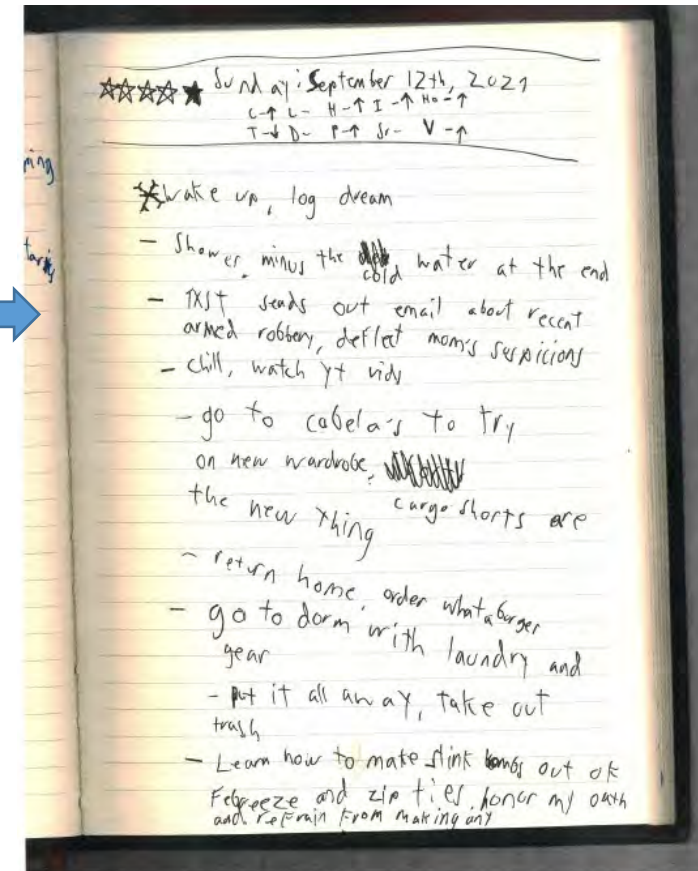 Sunday: September 12th, 2021
C-↑ L- H-↑ I-↑ Ho-↑
T-↓ D- P-↑ Sr- V-↑
ming
wake up, log dream
- Shower, minus the cold water at the end
- TXST sends out email about recent
armed robbery, deflect mom's suspicions
- chill, watch yt vids
- go to cabela's to try
on new wardrobe,
cargo shorts are
the new thing
- return home, order whataburger
- go to dorm with laundry and
gear
- put it all away, take out
trash
- Learn how to make stink bombs out of
Febreeze and zip ties, honor my oath
and refrain from making any